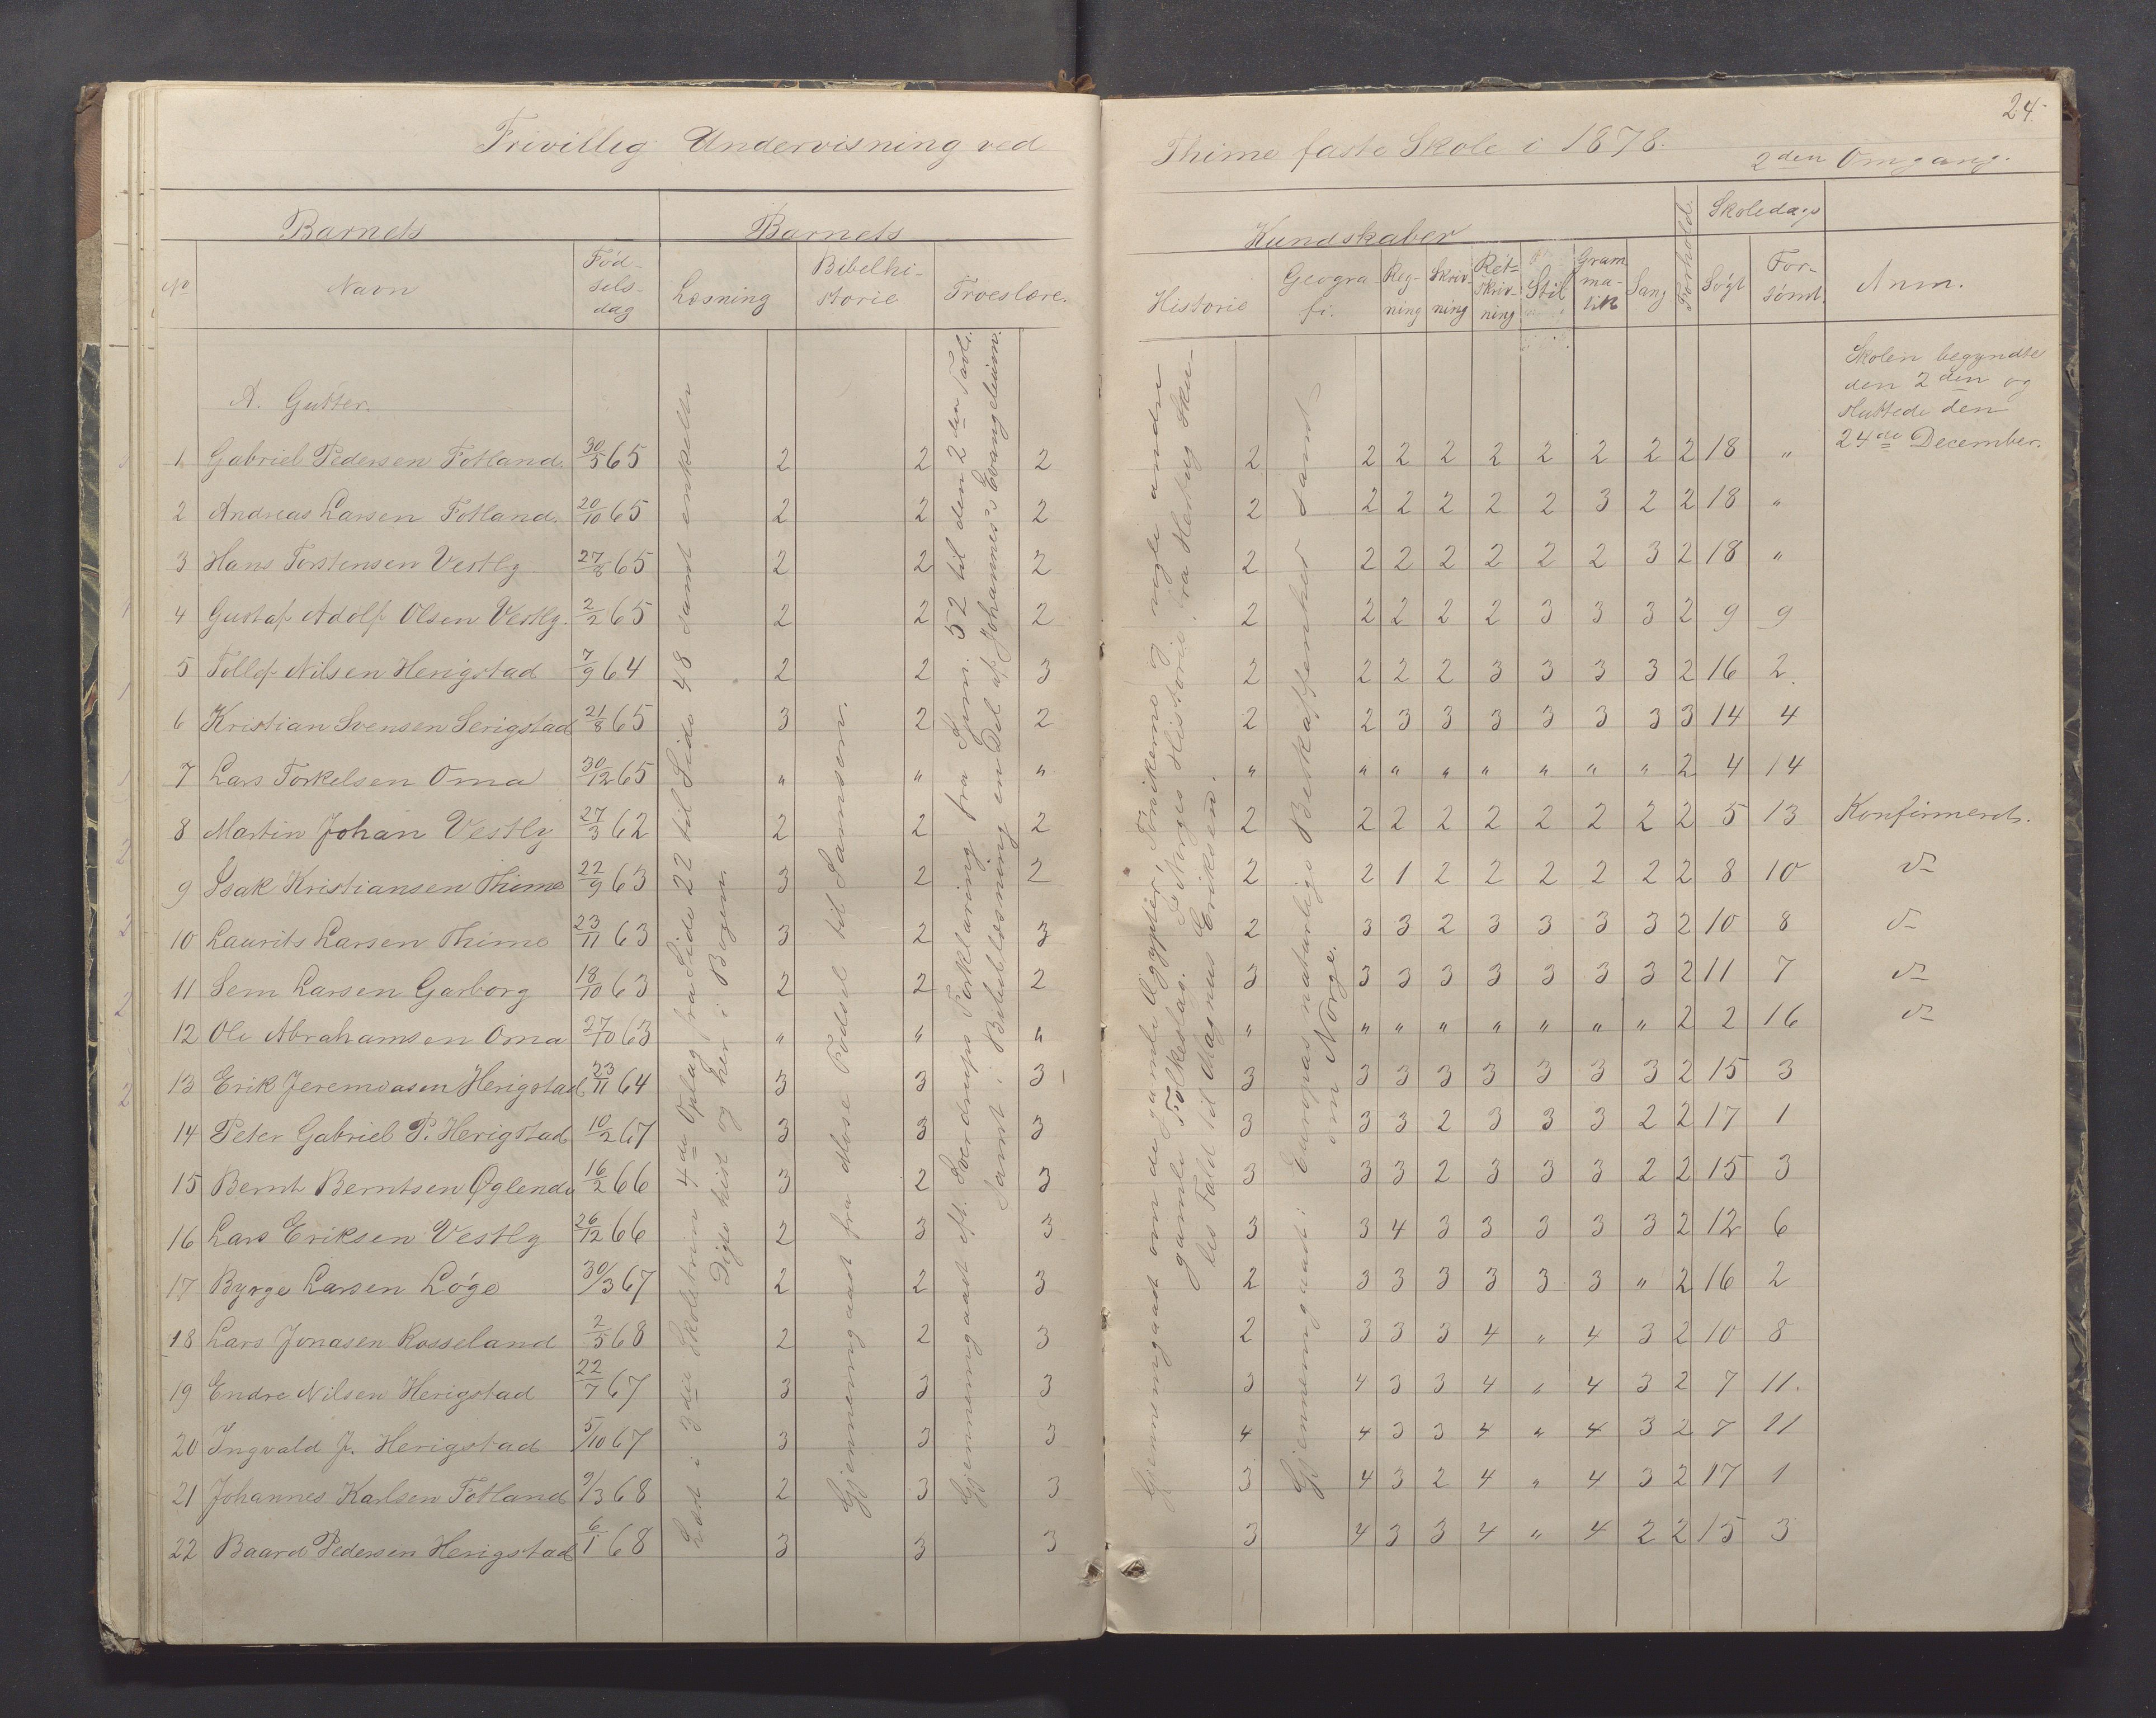 24
Frivillig Undervisning ved Thime faste Skole i 1878. 2den Omgang.
Barnets Barnets Kundskaber Forhold. Skoledage
No Navn Fødselsdag Læsning Bibelhistorie Troeslære. Historie Geografi. Regning Skrivning Retskrivning Stil Grammatik Sang Søgt Forsømt. Anm.
Skolen begyndte
den 2den og
sluttede den
24de December.
A. Gutter.
1 Gabriel Pedersen Fotland 30/5 65 2 2 2 2 2 2 2 2 2 2 2 2 18 "
2 Andreas Larsen Fotland. 20/10 65 2 2 2 2 2 2 2 2 2 3 2 2 18 "
3 Hans Torstensen Vestly 27/8 65 2 2 2 2 2 2 2 2 2 2 3 2 18 "
4 Gustaf Adolf Olsen Vestly. 2/2 65 2 2 2 2 2 2 2 2 3 3 3 2 9 9
5 Tollef Nilsen Herigstad 7/9 64 2 2 3 2 2 2 2 3 3 3 3 2 16 2
6 Kristian Svensen Serigstad 21/8 65 3 2 2 2 2 3 3 3 3 3 3 3 14 4
7 Lars Torkelsen Oma 30/12 65 " " " " " " " " " " " 2 4 14
8 Martin Johan Vestly 27/3 62 2 2 2 2 2 2 2 2 2 2 2 2 5 13 Konfirmeret.
9 Isak Kristiansen Thime 22/9 63 3 2 2 2 2 1 2 2 2 2 2 2 8 10 do
10 Laurits Larsen Thime 23/11 63 3 2 3 2 3 3 2 3 3 3 3 2 10 8 do
11 Sem Larsen Garborg 18/10 63 2 2 2 3 3 3 3 3 3 3 3 2 11 7 do
12 Ole Abrahamsen Oma 27/10 63 " " " " " " " " " " " 2 2 16 do
13 Erik Jeremiasen Herigstad 23/11 64 3 3 3 3 3 3 3 3 3 3 3 2 15 3
14 Peter Gabriel P. Herigstad 10/2 67 3 3 3 3 3 3 2 3 3 3 2 2 17 1
15 Bernt Berntsen Øglende 16/2 66 3 2 3 3 3 3 2 3 3 3 2 2 15 3
16 Lars Eriksen Vestly 26/12 66 2 3 3 3 3 4 3 3 3 3 3 2 12 6
17 Byrge Larsen Løge 30/3 67 2 2 3 2 3 3 3 3 3 3 " 2 16 2
18 Lars Jonasen Rosseland 2/5 68 2 2 3 2 3 3 3 4 " 4 3 2 10 8
19 Endre Nilsen Herigstad 22/7 67 3 3 3 3 4 3 3 4 " 4 3 2 7 11.
20 Ingvald J. Herigstad 5/10 67 3 3 3 4 4 3 3 4 " 4 3 2 7 11
21 Johannes Karlsen Fotland 9/3 68 2 3 3 3 4 3 2 4 " 4 3 2 17 1
22 Baard Pedersen Herigstad 6/1 68 3 3 3 3 4 3 3 4 " 4 2 2 15 3
Læst i 3die Skoletrin 4de Oplag fra Side 22 til Side 48 samt enkelte
Digte hist og her i Bogen.
Gjennemgaaet fra Mose Fødsel til Samson.
Gjennemgaaet eft. Sverdrups Forklaring fra Spm. 52 til den 2den Tavle.
Samt i Bibellæsning en Del af Johannes's Evangelium.
Gjennemgaaet om de gamle Ægypter, Fønikerne og nogle andre
gamle Folkeslag. I Norges Historie, fra Hertug Sku-
les Fald til Magnus Eriksen.
Gjennemgaaet: Europas naturlige Beskaffenhed samt
om Norge.